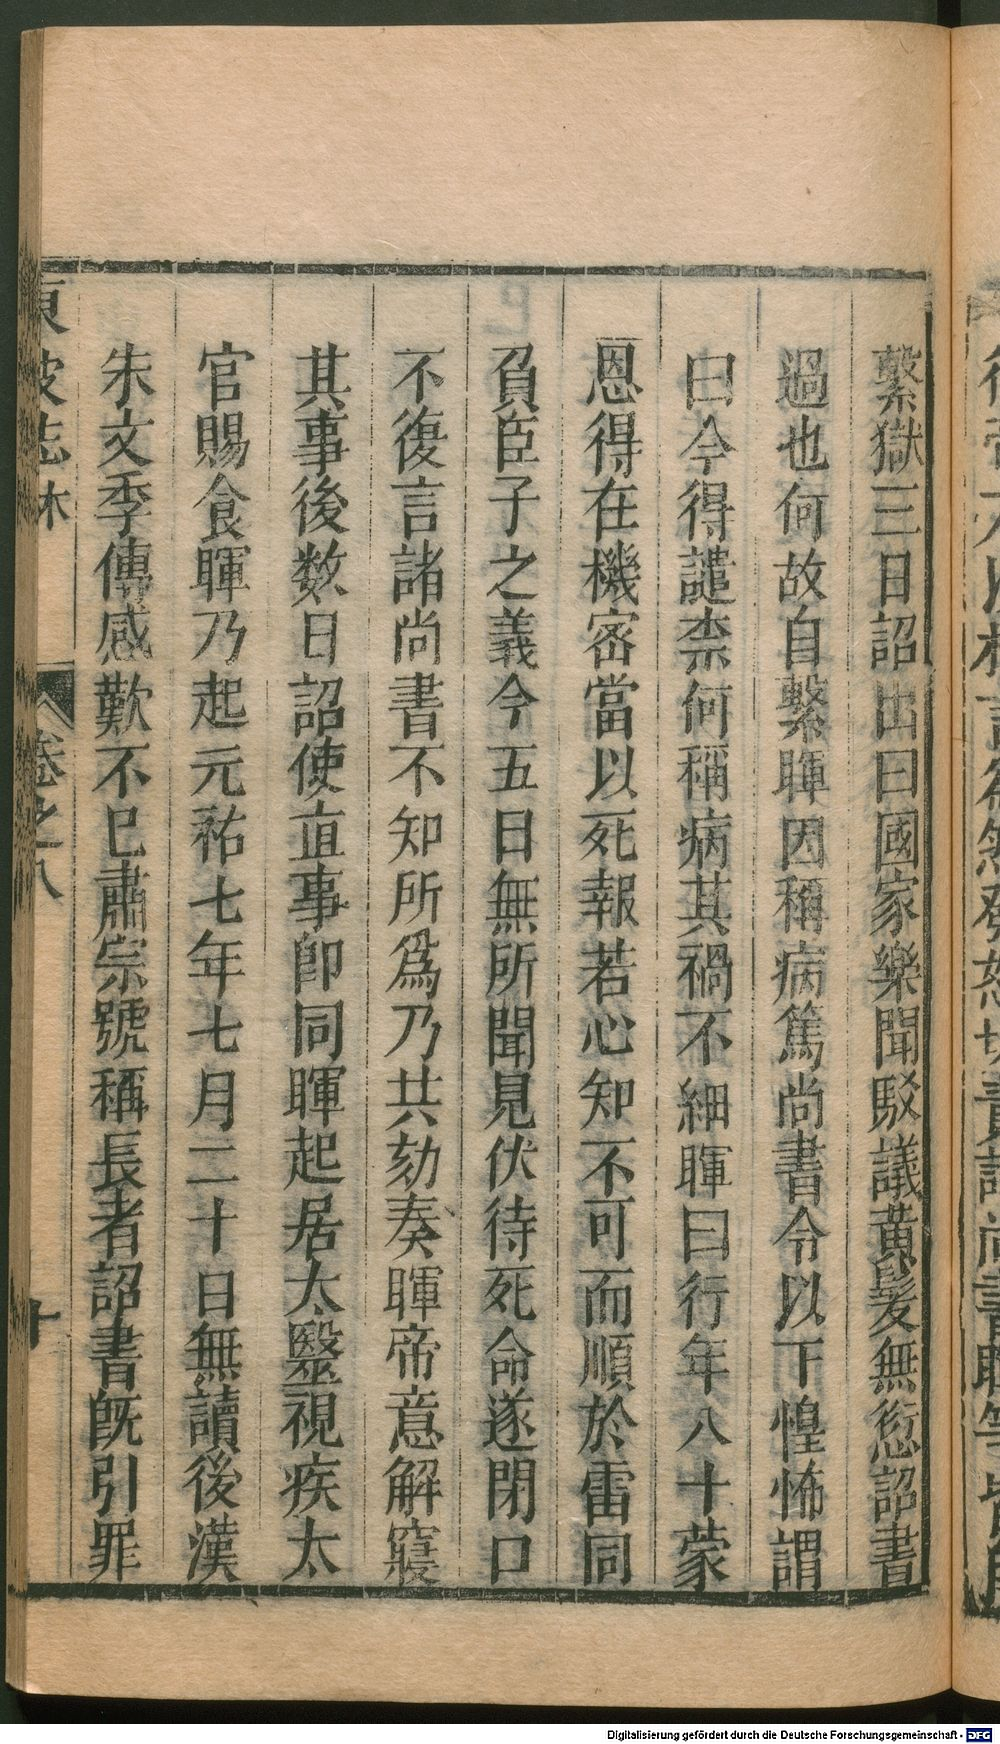 繫獄三日詔出曰國家樂聞駁議黃髮無愆詔書
過也何故自繫暉因稱病篤尚書令以下惶怖謂
曰今得譴柰何稱病其禍不細暉曰行年八十蒙
恩得在機宻當以死報若心知不可而順於雷同
負臣子之義今五日無所聞見伏待死命遂閉口
不復言諸尚書不知所爲乃共劾奏暉帝意解寢
其事後数日詔使直事郎同暉起居太醫視疾太
官賜食暉乃起元祐七年七月二十日無讀後漢
朱文季傳感歎不已肅宗號稱長者詔書旣引罪
東坡志林 卷之八 十
Digitalisierung gefördert durch die Deutsche Forschungsgemeinschaft - DFG